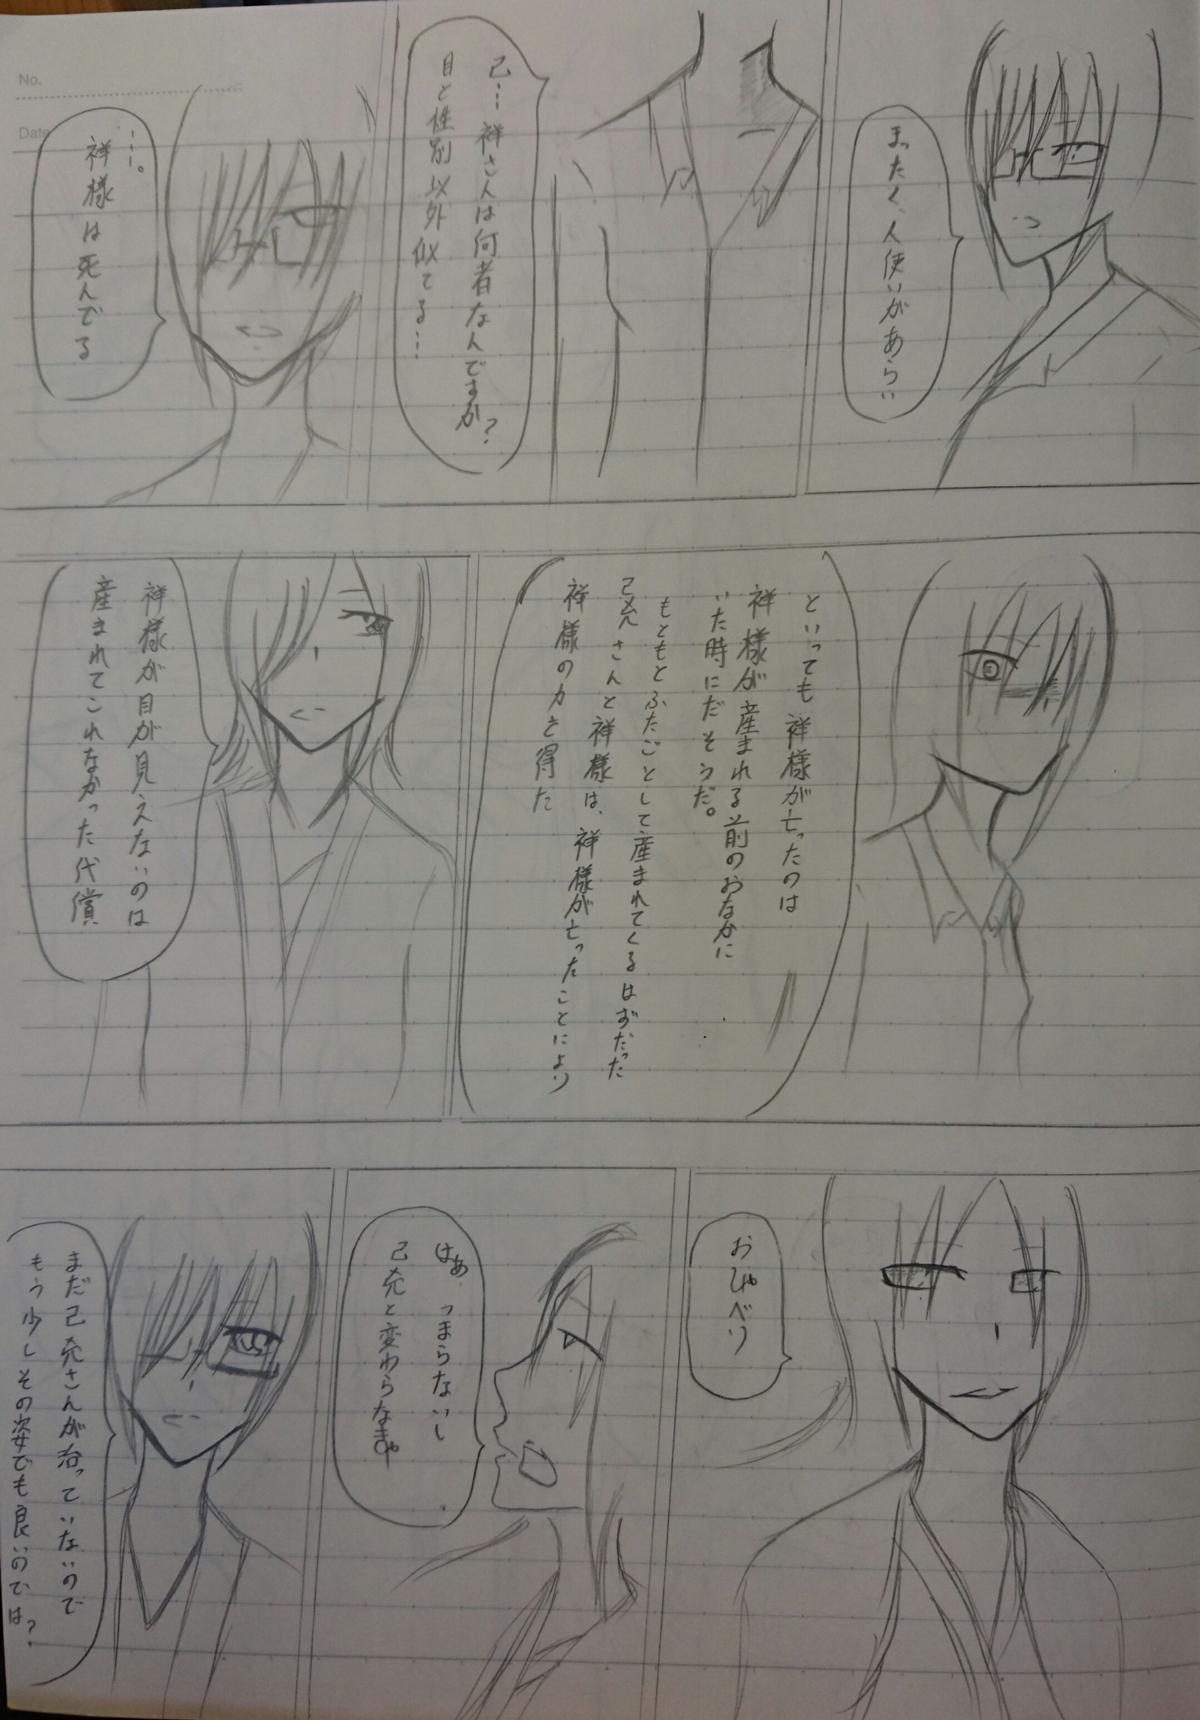 まったく、人使いがあらい
己…祥さんは何者なんですか?
目と性別以外似てる…
…。
祥様は死んでる
といっても祥様が亡ったのは
祥様が産まれる前のおなかに
いた時にだそうだ。
もともとふたごとして産まれてくるはずだった
己尭さんと祥様は、祥様が亡ったことにより
祥様の力を得た
祥様が目が見えないのは
産まれてこれなかった代償
おしゃべり
はぁ つまらないし
己尭と変わらなきゃ
まだ己尭さんが治っていないので
もう少しその姿でも良いのでは?
No.
Date